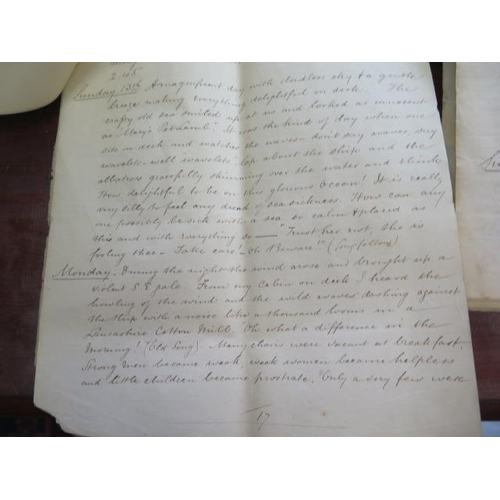 2.45
Sunday 13th A magnificent day with cloudless sky & a gentle
breeze making everything delightful on deck. The
crafty old sea smiled up at us and looked as innocent
as "Mary's Pet Lamb". It was the kind of day when one
sits on deck and watches the waves - don't say waves, say
wavelets - well wavelets lap about the ship and the
albatross gracefully skimming over the water and thinks
How delightful to be on this glorious Ocean! It is really
very silly to feel any dread of sea sickness. How can any
one possibly be sick with a sea so calm & placid as
this and with everything so — "Trust her not, she is
fooling thee - Take care! - Oh Beware!" (Longfellow)
Monday. During the night the wind arose and brought up a
violent S.E gale. From my cabin on deck I heard the
howling of the wind and the wild waves dashing against
the ship with a noise like a thousand looms in a
Lancashire Cotton Mill. Oh what a difference in the
Morning! (Old Song). Many chairs were vacant at breakfast.
Strong men became weak, weak women became helpless
and little children became prostrate. Only a very few were
17